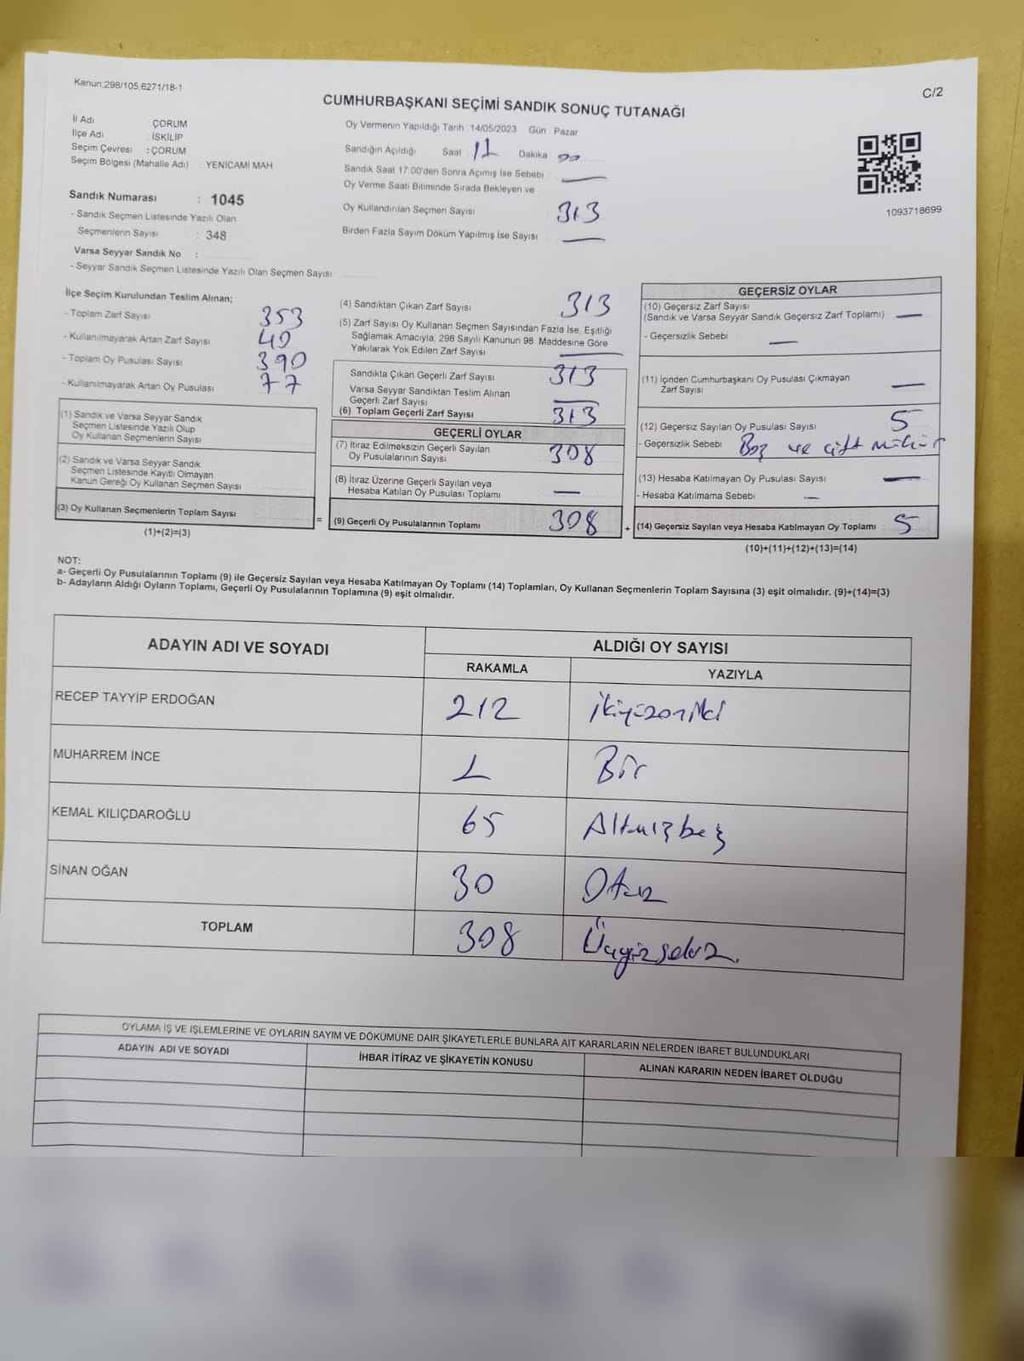 Kanun;298/105,6271/18-1
C/2
CUMHURBAŞKANI SEÇİMİ SANDIK SONUÇ TUTANAĞI
İl Adı ÇORUM
İlçe Adı İSKİLİP
Seçim Çevresi : ÇORUM
Seçim Bölgesi (Mahalle Adı) YENICAMI MAH
Sandık Numarası : 1045
- Sandık Seçmen Listesinde Yazılı Olan
Seçmenlerin Sayısı : 348
Varsa Seyyar Sandık No :
- Seyyar Sandık Seçmen Listesinde Yazılı Olan Seçmen Sayısı
Oy Vermenin Yapıldığı Tarih 14/05/2023 Gün Pazar
Sandığın Açıldığı Saat 17 Dakika 00
Sandık Saat 17.00'den Sonra Açılmış İse Sebebi
Oy Verme Saati Bitiminde Sırada Bekleyen ve
Oy Kullandırılan Seçmen Sayısı 313
Birden Fazla Sayım Döküm Yapılmış İse Sayısı
1093718699
İlçe Seçim Kurulundan Teslim Alınan;
- Toplam Zarf Sayısı 353
- Kullanılmayarak Artan Zarf Sayısı 40
- Toplam Oy Pusulası Sayısı 390
- Kullanılmayarak Artan Oy Pusulası 77
(1) Sandık ve Varsa Seyyar Sandık
Seçmen Listesinde Yazılı Olup
Oy Kullanan Seçmenlerin Sayısı
(2) Sandık ve Varsa Seyyar Sandık
Seçmen Listesinde Kayıtlı Olmayan
Kanun Gereği Oy Kullanan Seçmen Sayısı
(3) Oy Kullanan Seçmenlerin Toplam Sayısı
(1)+(2)=(3)
(4) Sandıktan Çıkan Zarf Sayısı 313
(5) Zarf Sayısı Oy Kullanan Seçmen Sayısından Fazla İse, Eşitliği
Sağlamak Amacıyla, 298 Sayılı Kanunun 98. Maddesine Göre
Yakılarak Yok Edilen Zarf Sayısı
Sandıkta Çıkan Geçerli Zarf Sayısı 313
Varsa Seyyar Sandıktan Teslim Alınan
Geçerli Zarf Sayısı
(6) Toplam Geçerli Zarf Sayısı 313
GEÇERLİ OYLAR
(7) İtiraz Edilmeksizin Geçerli Sayılan
Oy Pusulalarının Sayısı 308
(8) İtiraz Üzerine Geçerli Sayılan veya
Hesaba Katılan Oy Pusulası Toplamı —
= (9) Geçerli Oy Pusulalarının Toplamı 308
GEÇERSİZ OYLAR
(10) Geçersiz Zarf Sayısı
(Sandık ve Varsa Seyyar Sandık Geçersiz Zarf Toplamı) —
- Geçersizlik Sebebi —
(11) İçinden Cumhurbaşkanı Oy Pusulası Çıkmayan
Zarf Sayısı —
(12) Geçersiz Sayılan Oy Pusulası Sayısı 5
- Geçersizlik Sebebi Boş ve çift mühür
(13) Hesaba Katılmayan Oy Pusulası Sayısı —
- Hesaba Katılmama Sebebi —
+ (14) Geçersiz Sayılan veya Hesaba Katılmayan Oy Toplamı 5
(10)+(11)+(12)+(13)=(14)
NOT:
a- Geçerli Oy Pusulalarının Toplamı (9) ile Geçersiz Sayılan veya Hesaba Katılmayan Oy Toplamı (14) Toplamları, Oy Kullanan Seçmenlerin Toplam Sayısına (3) eşit olmalıdır. (9)+(14)=(3)
b- Adayların Aldığı Oyların Toplamı, Geçerli Oy Pusulalarının Toplamına (9) eşit olmalıdır.
ADAYIN ADI VE SOYADI ALDIĞI OY SAYISI
RAKAMLA YAZIYLA
RECEP TAYYİP ERDOĞAN 212 İkiyüzoniki
MUHARREM İNCE 1 Bir
KEMAL KILIÇDAROĞLU 65 Altmışbeş
SİNAN OĞAN 30 Otuz
TOPLAM 308 Üçyüzsekiz.
OYLAMA İŞ VE İŞLEMLERİNE VE OYLARIN SAYIM VE DÖKÜMÜNE DAİR ŞİKAYETLERLE BUNLARA AİT KARARLARIN NELERDEN İBARET BULUNDUKLARI
ADAYIN ADI VE SOYADI İHBAR İTİRAZ VE ŞİKAYETİN KONUSU ALINAN KARARIN NEDEN İBARET OLDUĞU